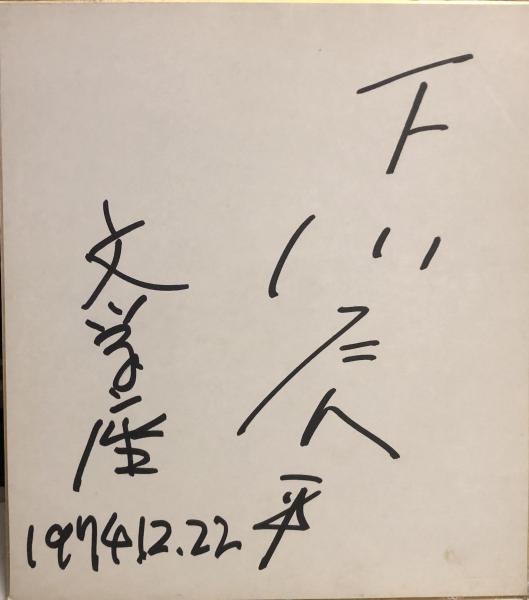 下川辰平
文学座
197412.22